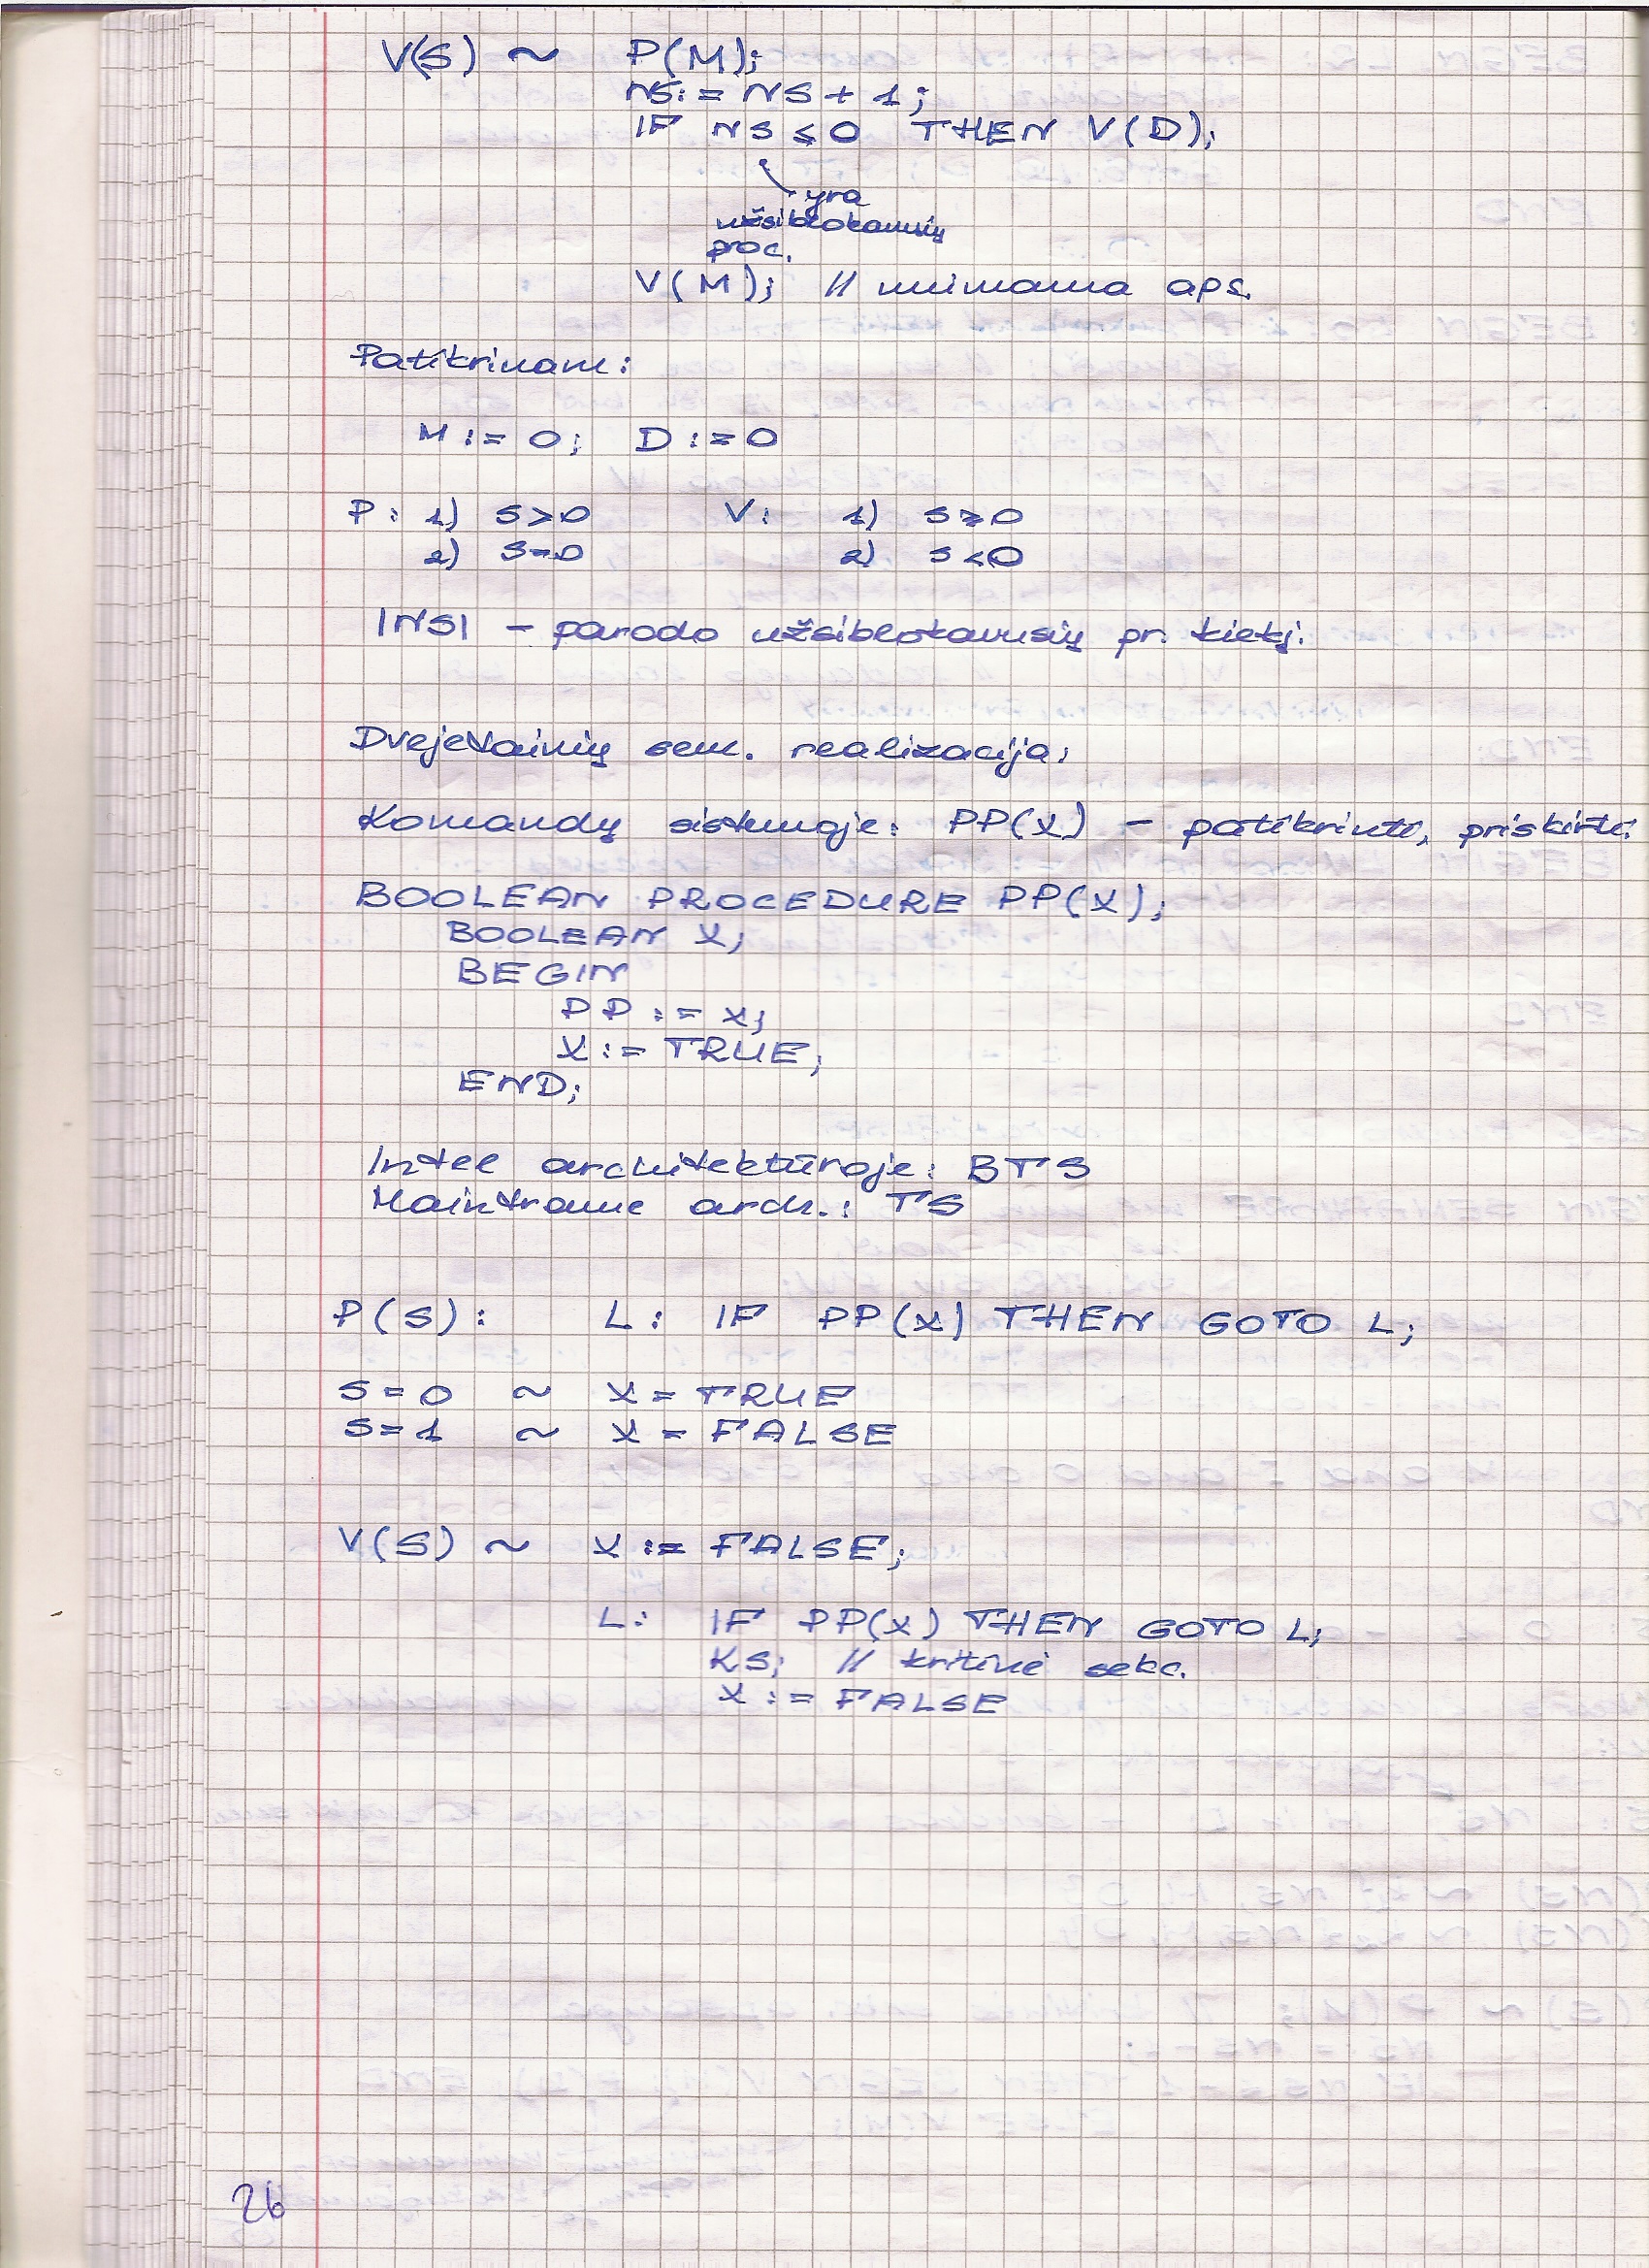 V(S) ~ P(M);
NS := NS + 1;
IF NS ≤ 0 THEN V(D);
yra
užsiblokavusių
proc.
V(M); // nuimama aps.
Patikrinam:
M := 0; D := 0
P: 1) S>0 V: 1) S≥0
2) S=0 2) S<0
|NS| – parodo užsiblokavusių pr. kiekį.
Dvejetainių sem. realizacija:
Komandų sistemoje: PP(X) – patikrinti, priskirti.
BOOLEAN PROCEDURE PP(X);
BOOLEAN X;
BEGIN
PP := X;
X := TRUE;
END;
Intel architektūroje: BTS
Mainframe arch.: TS
P(S): L: IF PP(X) THEN GOTO L;
S = 0 ~ X = TRUE
S = 1 ~ X = FALSE
V(S) ~ X := FALSE;
L: IF PP(X) THEN GOTO L;
KS; // kritinė sekc.
X := FALSE
26